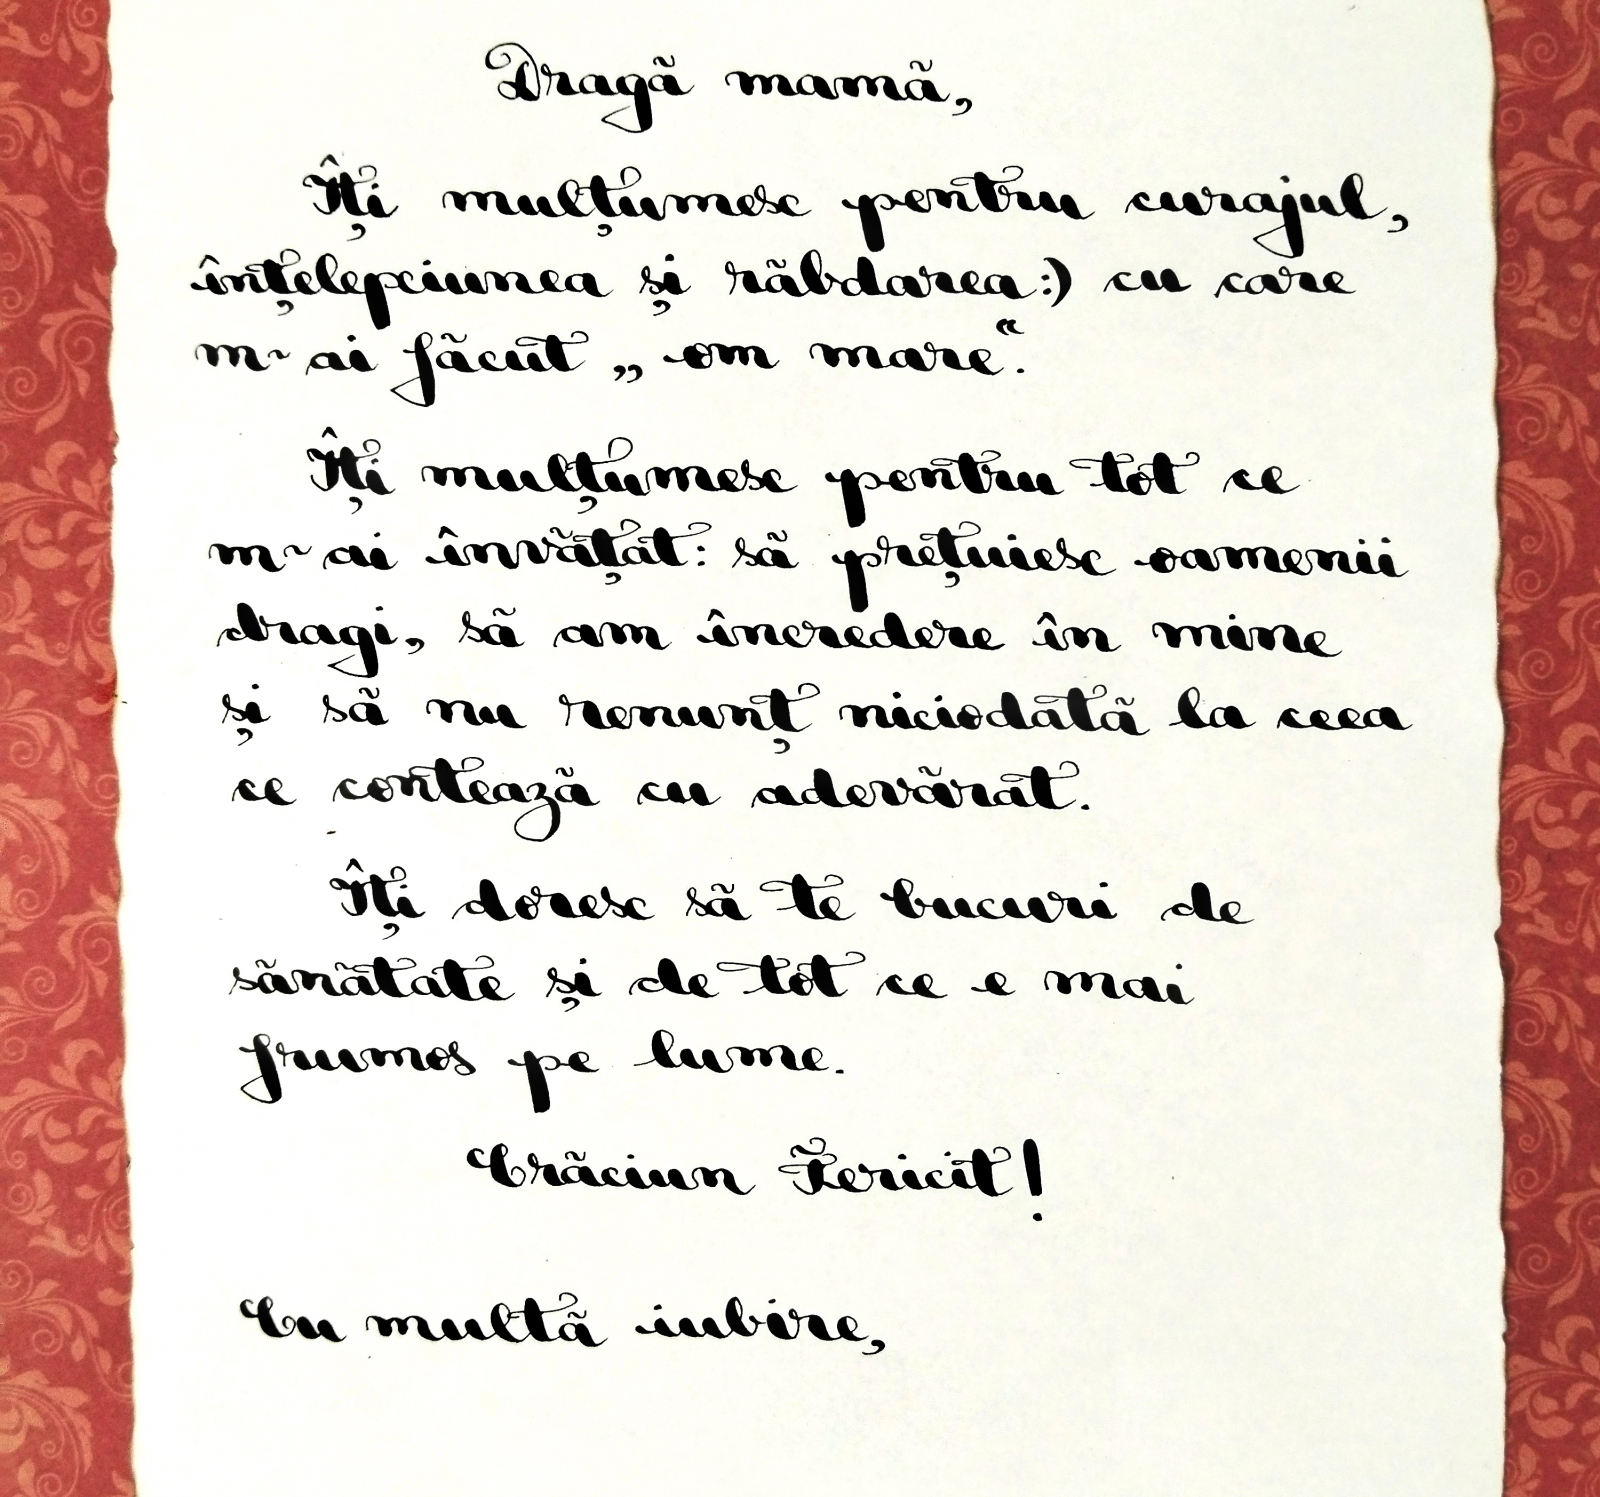 Dragă mamă,
Îți mulțumesc pentru curajul,
înțelepciunea și răbdarea:) cu care
m-ai făcut „om mare“.
Îți mulțumesc pentru tot ce
m-ai învățat: să prețuiesc oamenii
dragi, să am încredere în mine
și să nu renunț niciodată la ceea
ce contează cu adevărat.
Îți doresc să te bucuri de
sănătate și de tot ce e mai
frumos pe lume.
Crăciun Fericit!
Cu multă iubire,